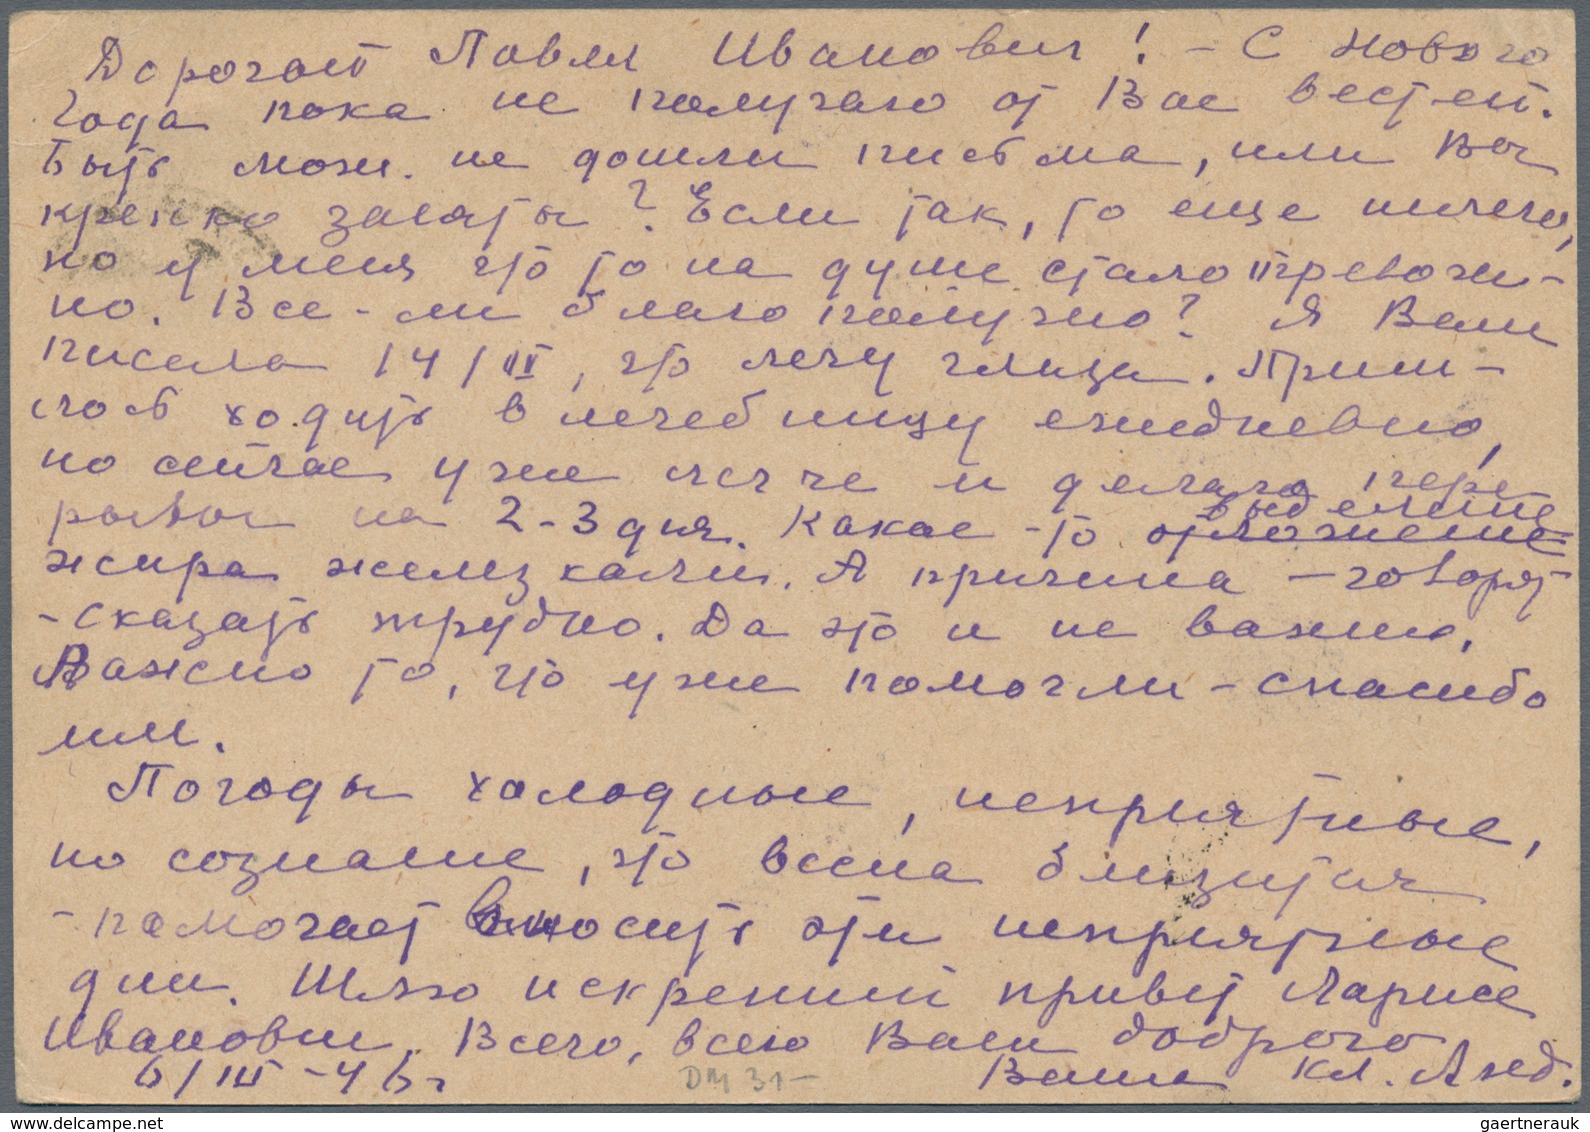 Дорогой Павел Иванович! - С Нового
Года пока не получаю от Вас вестей.
Быть мож. не дошли письма, или Вы
крепко заняты? Если так, то еще ничего,
но у меня что то на душе стало тревожи-
но. Все-ли благополучно? Я Вам
писала 14/II, что лечу глаза. Приш-
лось ходить в лечебницу ежедневно,
но сейчас уже легче и делаю пере
рывы на 2-3 дня. Какое-то отложение
выделение
жира железками. А причина - говорят
- сказать трудно. Да это и не важно.
Важно то, что уже помогли - спасибо
им.
Погоды холодные, неприятные,
но сознание, что весна близится
- помогает выносить эти неприятные
дни. Шлю искренний привет Ларисе
Ивановне. Всего, всего Вам доброго
6/III-46г
Ваша Кл.
DM 31-
gaertnerauk